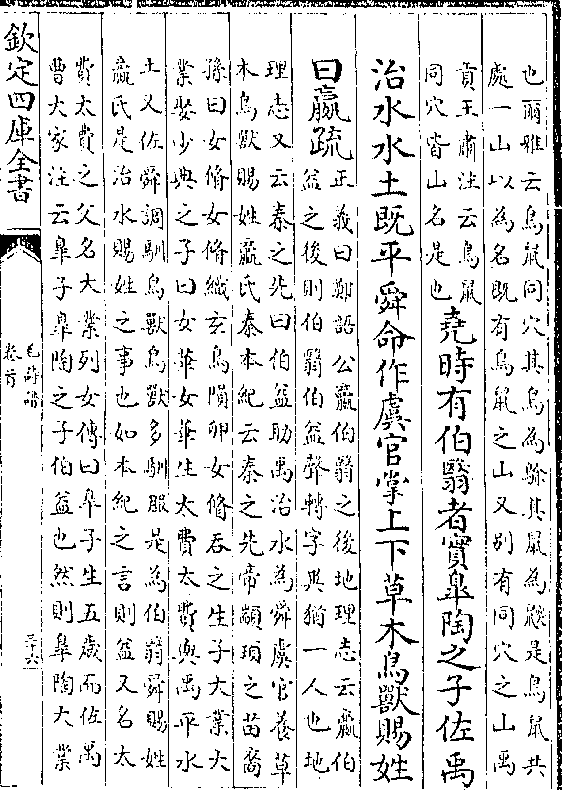 也爾雅云鳥鼠同穴其鳥為鵌其鼠為鼵是鳥鼠共
處一山以為名既有鳥鼠之山又別有同穴之山禹
貢王肅注云鳥鼠
同穴皆山名是也
堯時有伯翳者實皐陶之子佐禹
治水水土既平舜命作虞官掌上下草木鳥獸賜姓
曰嬴疏
正義曰鄭語公嬴伯翳之後地理志云嬴伯
益之後則伯翳伯益聲轉字異猶一人也地
理志又云秦之先曰伯益助禹治水為舜虞官養草
木鳥獸賜姓嬴氏秦本紀云秦之先帝顓頊之苗裔
孫曰女脩女脩織玄鳥隕卵女脩吞之生子大業大
業娶少典之子曰女華女華生大費太費與禹平水
土又佐舜調馴鳥獸鳥獸多馴服是為伯翳舜賜姓
嬴氏是治水賜姓之事也如本紀之言則益又名太
費太費之父名大業列女傳曰皐子生五歲而佐禹
曹大家注云皐子皐陶之子伯益也然則皐陶大業
欽定四庫全書
毛詩譜
卷首
三十六